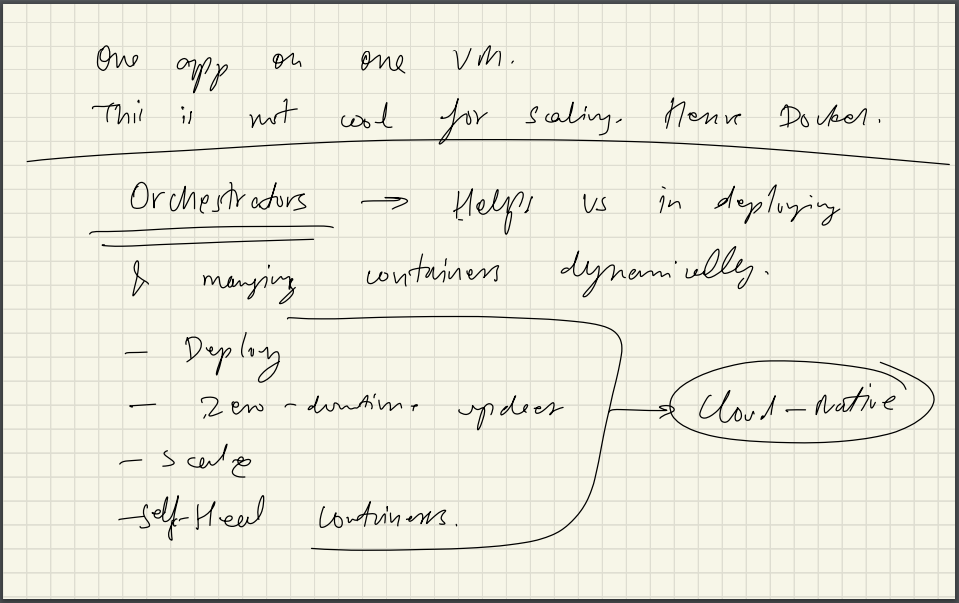 One app on one VM.
This is not cool for scaling. Hence Docker.
Orchestrators → Helps us in deploying
& managing containers dynamically.
– Deploy
– Zero-downtime updates
– Scale
– Self-Heal containers.
Cloud-Native